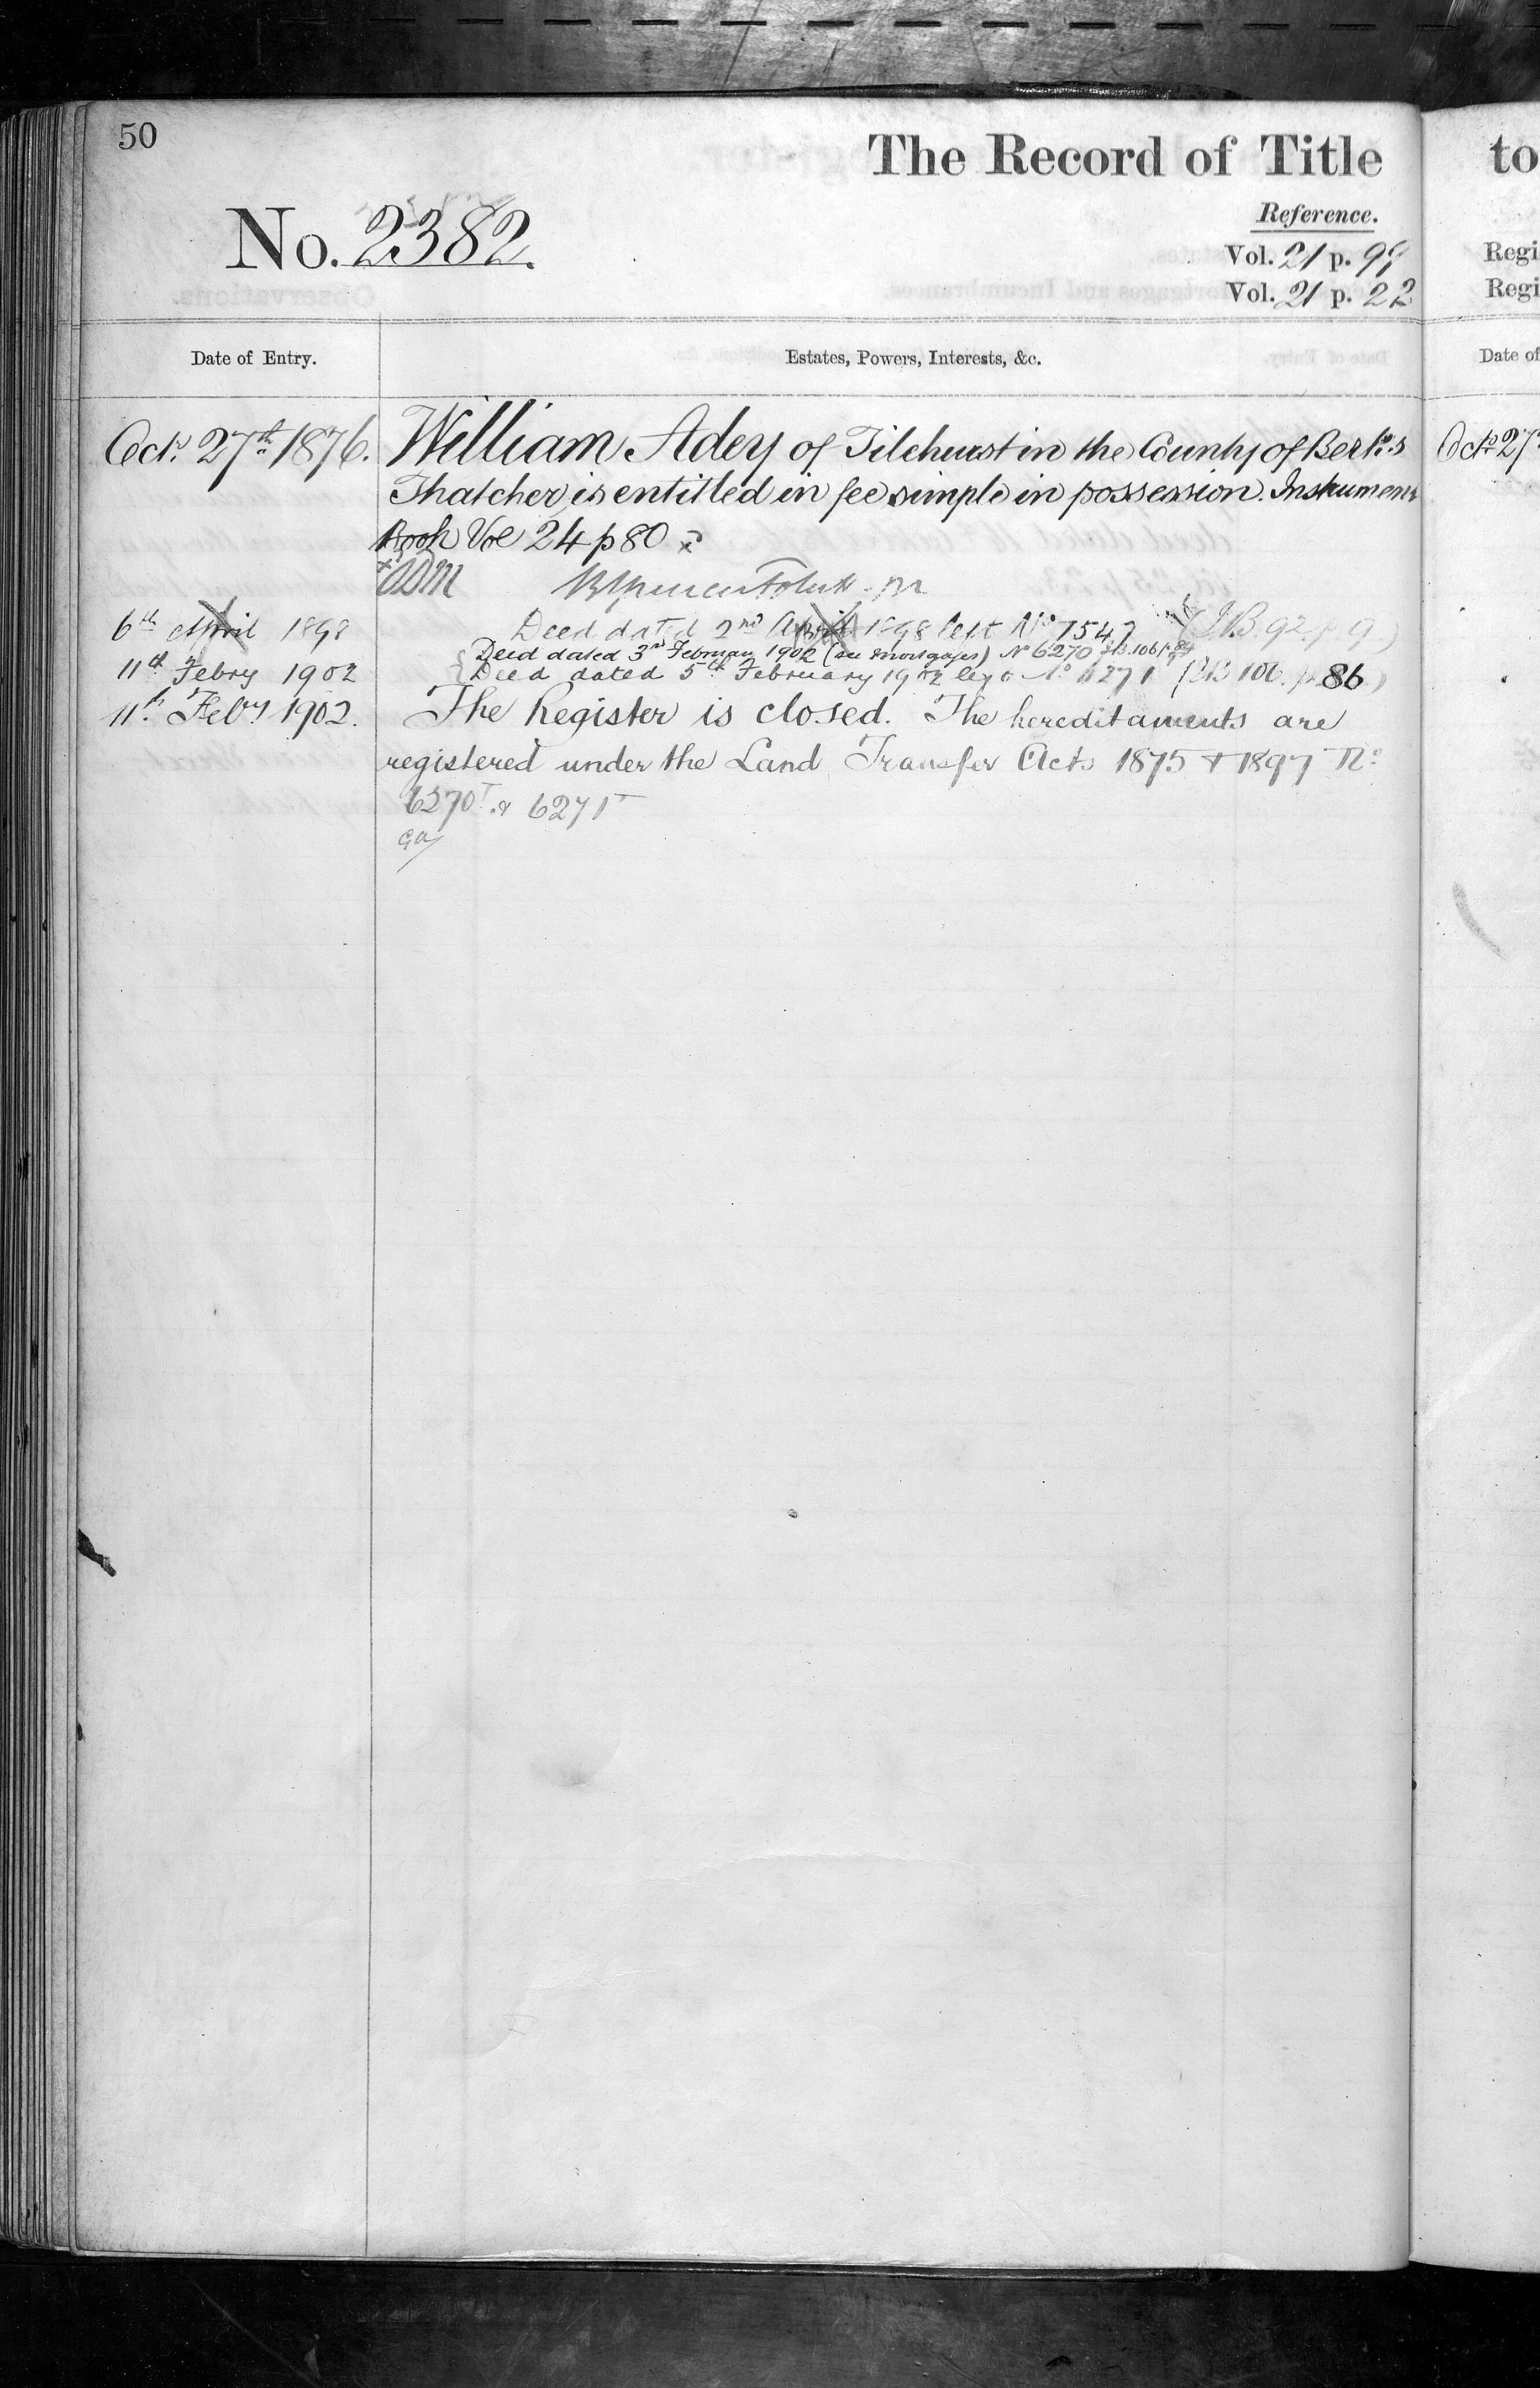 50
The Record of Title
to
No. 2382.
Reference.
Vol. 21 p. 99
Regi
Vol. 21 p. 22
Regi
Date of Entry.
Estates, Powers, Interests, &c.
Date of
Octr. 27th 1876.
William Adey of Tilehurst in the County of Berks
Octr. 27
Thatcher is entitled in fee simple in possession. Instrument
Book Vol 24 p 80
6th April 1898
Deed dated 2nd April 1898 left No 1547 (I.B. 92. p 9)
Deed dated 3rd February 1902 (see Mortgages) No 6270 I.B. 106 p
11th Febry 1902
Deed dated 5th February 1902 No 6271 106. p 86)
11th Feby 1902.
The Register is closed. The hereditaments are
registered under the Land Transfer Acts 1875 + 1897 No
6270T & 6271T